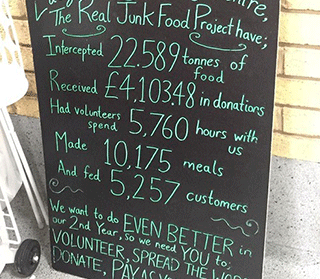 The Real Junk Food Project have;
Intercepted 22.589 tonnes of food
Received £4,103.48 in donations
Had volunteers spend 5,760 hours with us
Made 10,175 meals
And fed 5,257 customers
We want to do EVEN BETTER in
our 2nd Year, so we need YOU to:
VOLUNTEER, SPREAD THE
DONATE, PAY AS